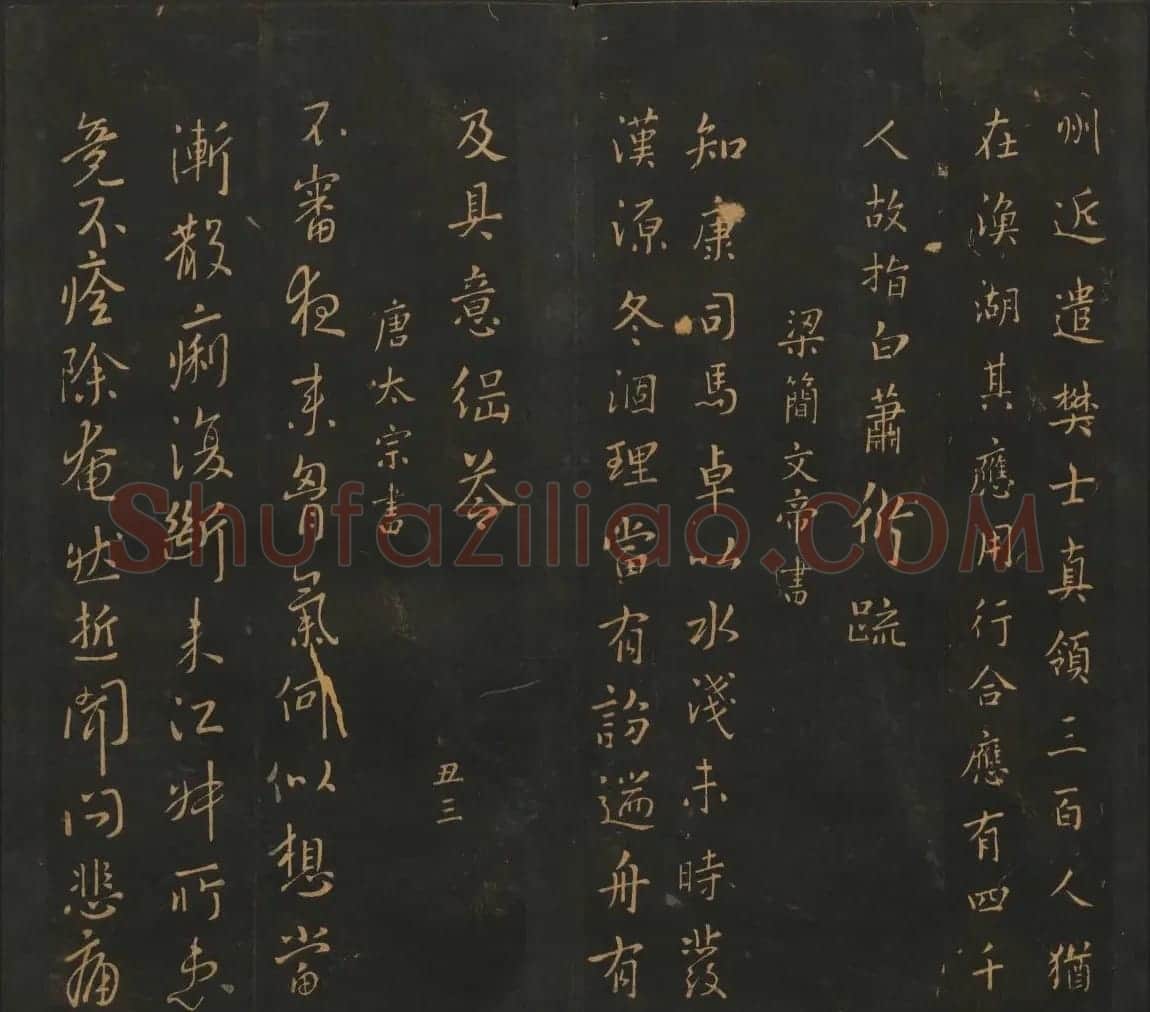 州近遣樊士真領三百人猶
在渙湖其應用行合應有四千
人故指白蕭衍疏
梁簡文帝書
知康司馬卓以水淺未時發
漢源冬涸理當有訪遄舟有
及具意俓答
丑三
唐太宗書
不審夜來胷氣何似想當
漸散痢復斷未江叔所患
竟不痊除奄然逝聞問悲痛
Shufaziliao.COM